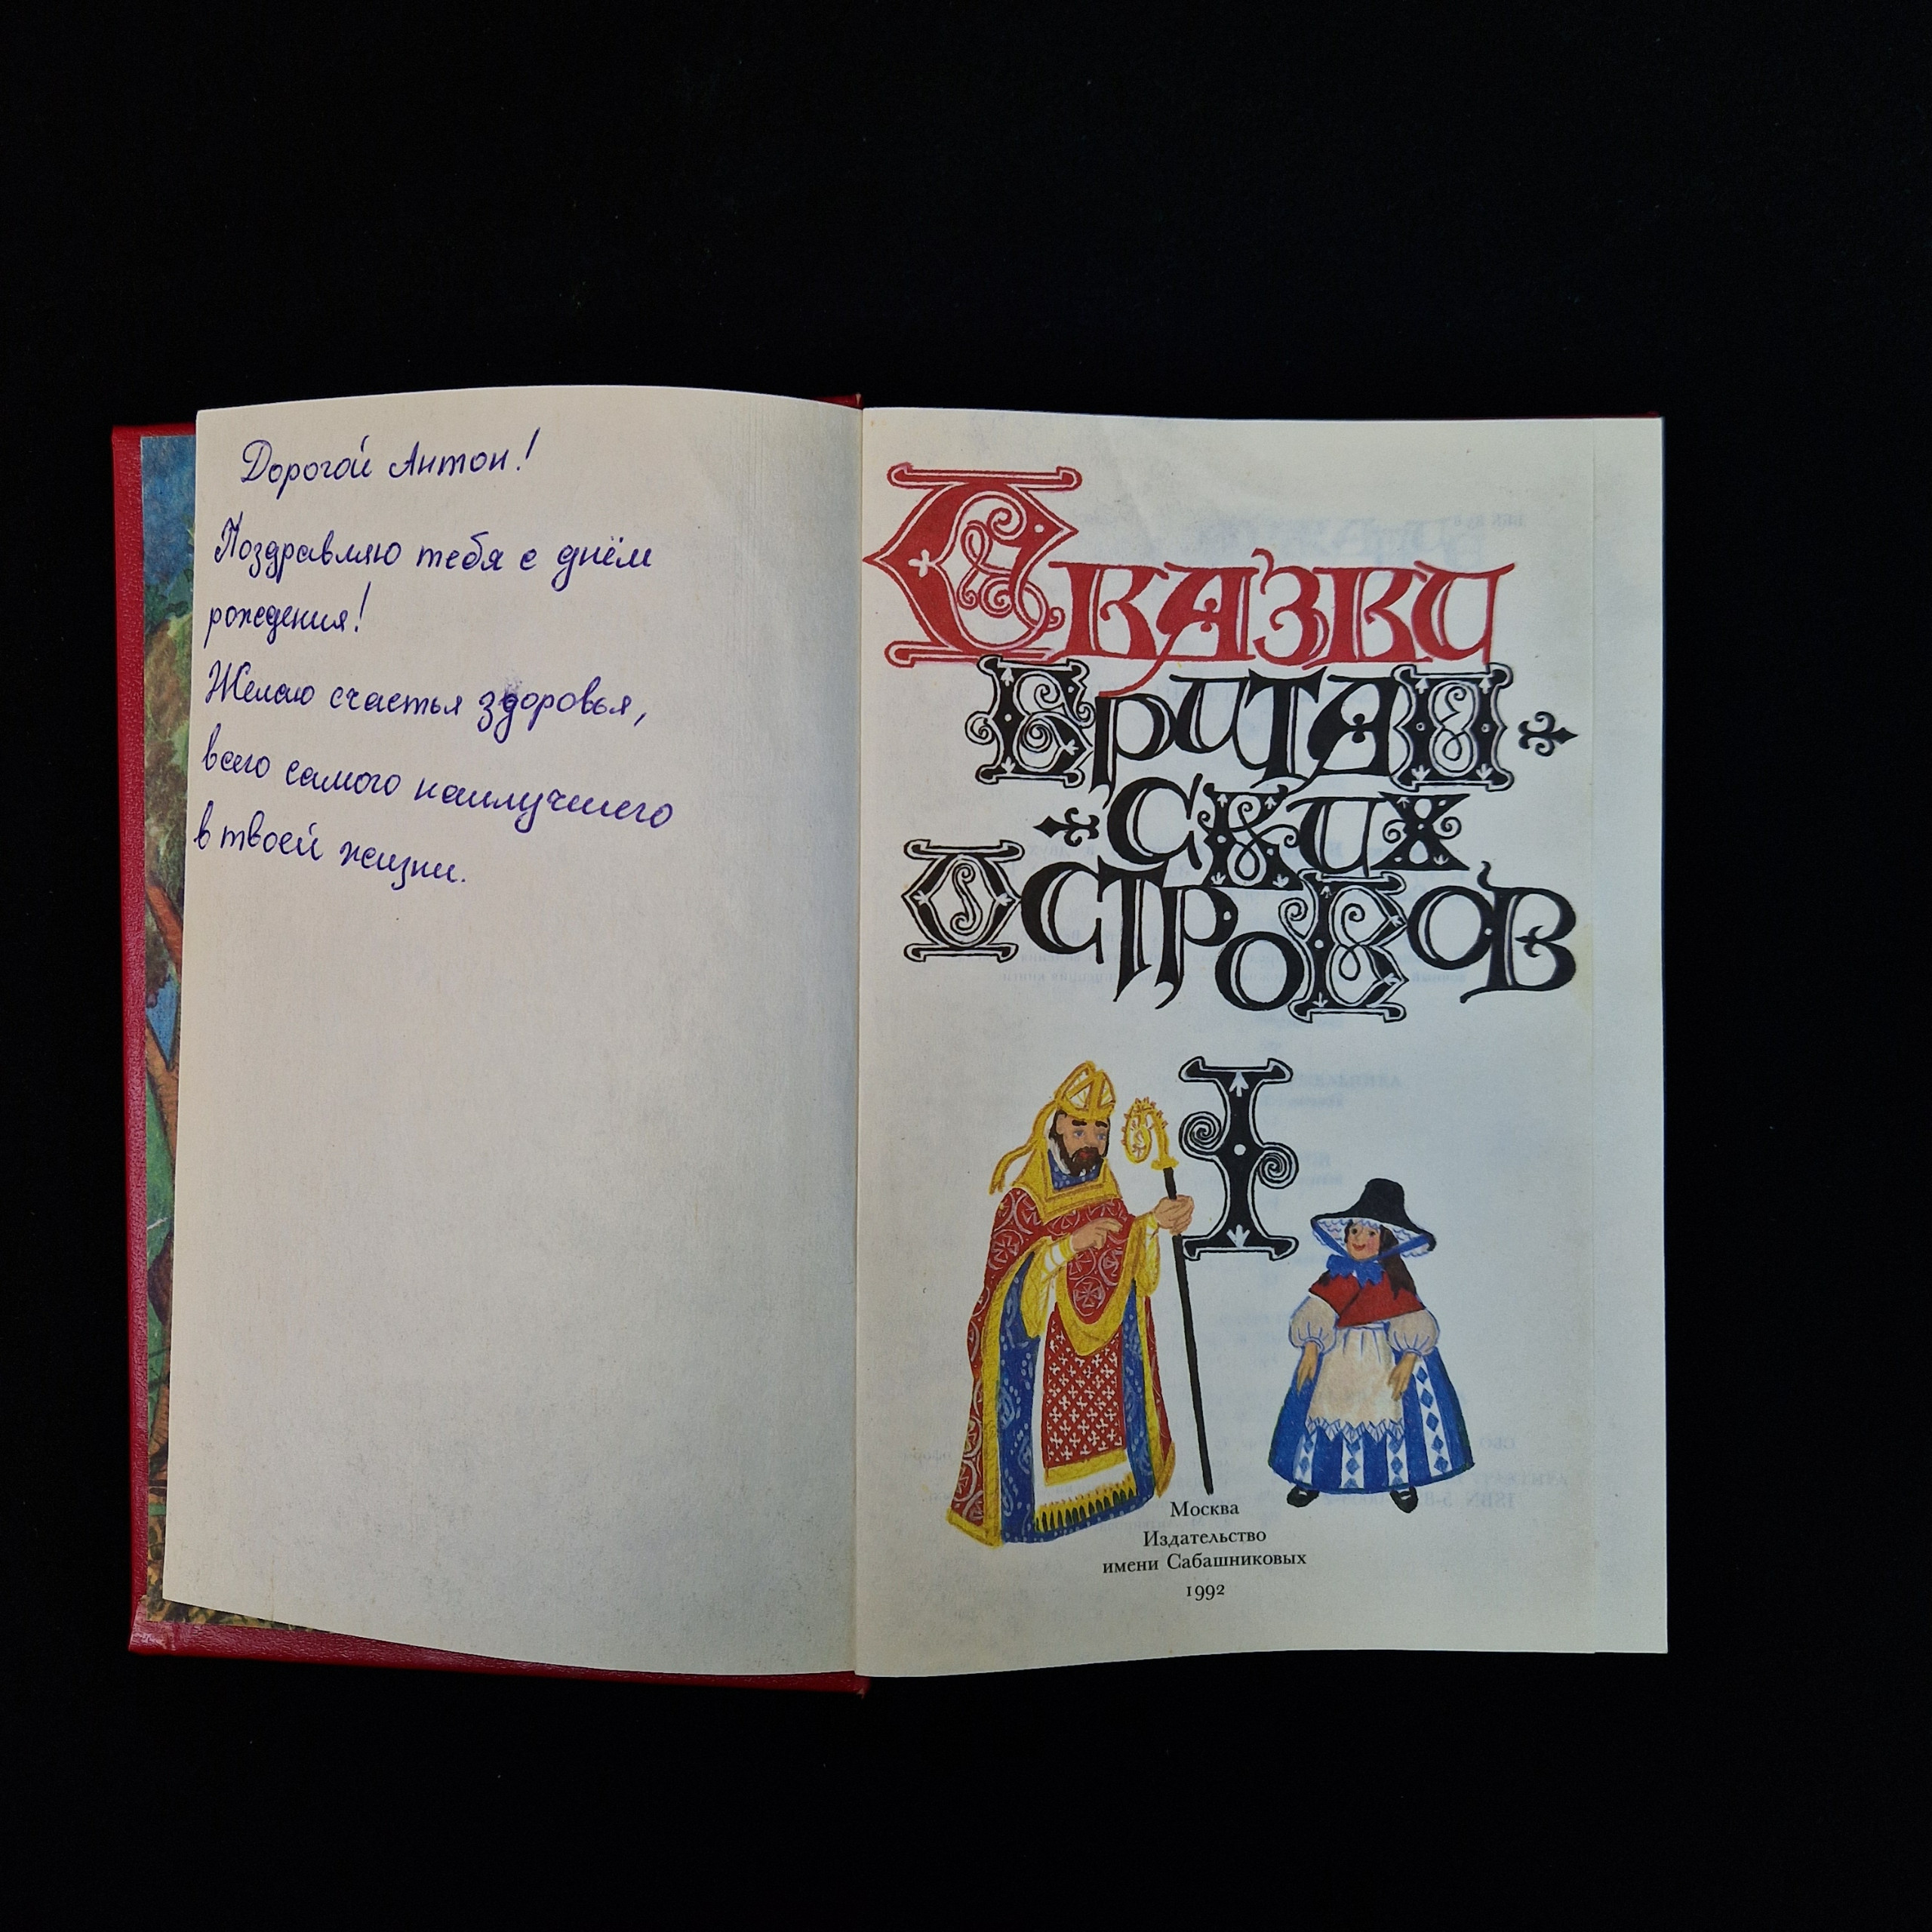 Дорогой Антон!
Поздравляю тебя с днём
рождения!
Желаю счастья здоровья,
всего самого наилучшего
в твоей жизни.
Сказки
Британ
ских
Островов
I
Москва
Издательство
имени Сабашниковых
1992